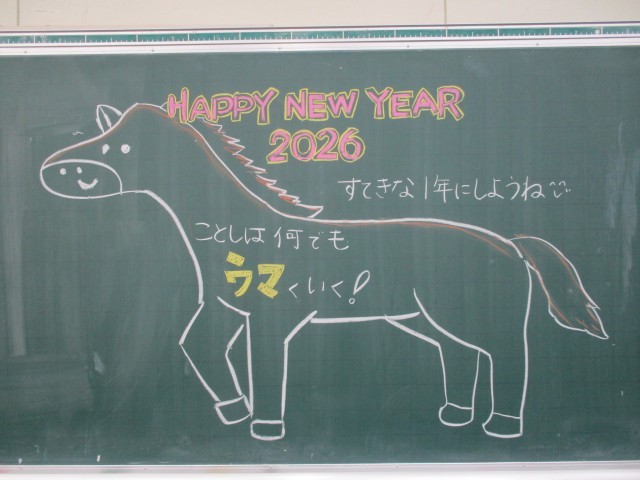 HAPPY NEW YEAR
2026
すてきな1年にしようね
ことしは何でも
ウマくいく!